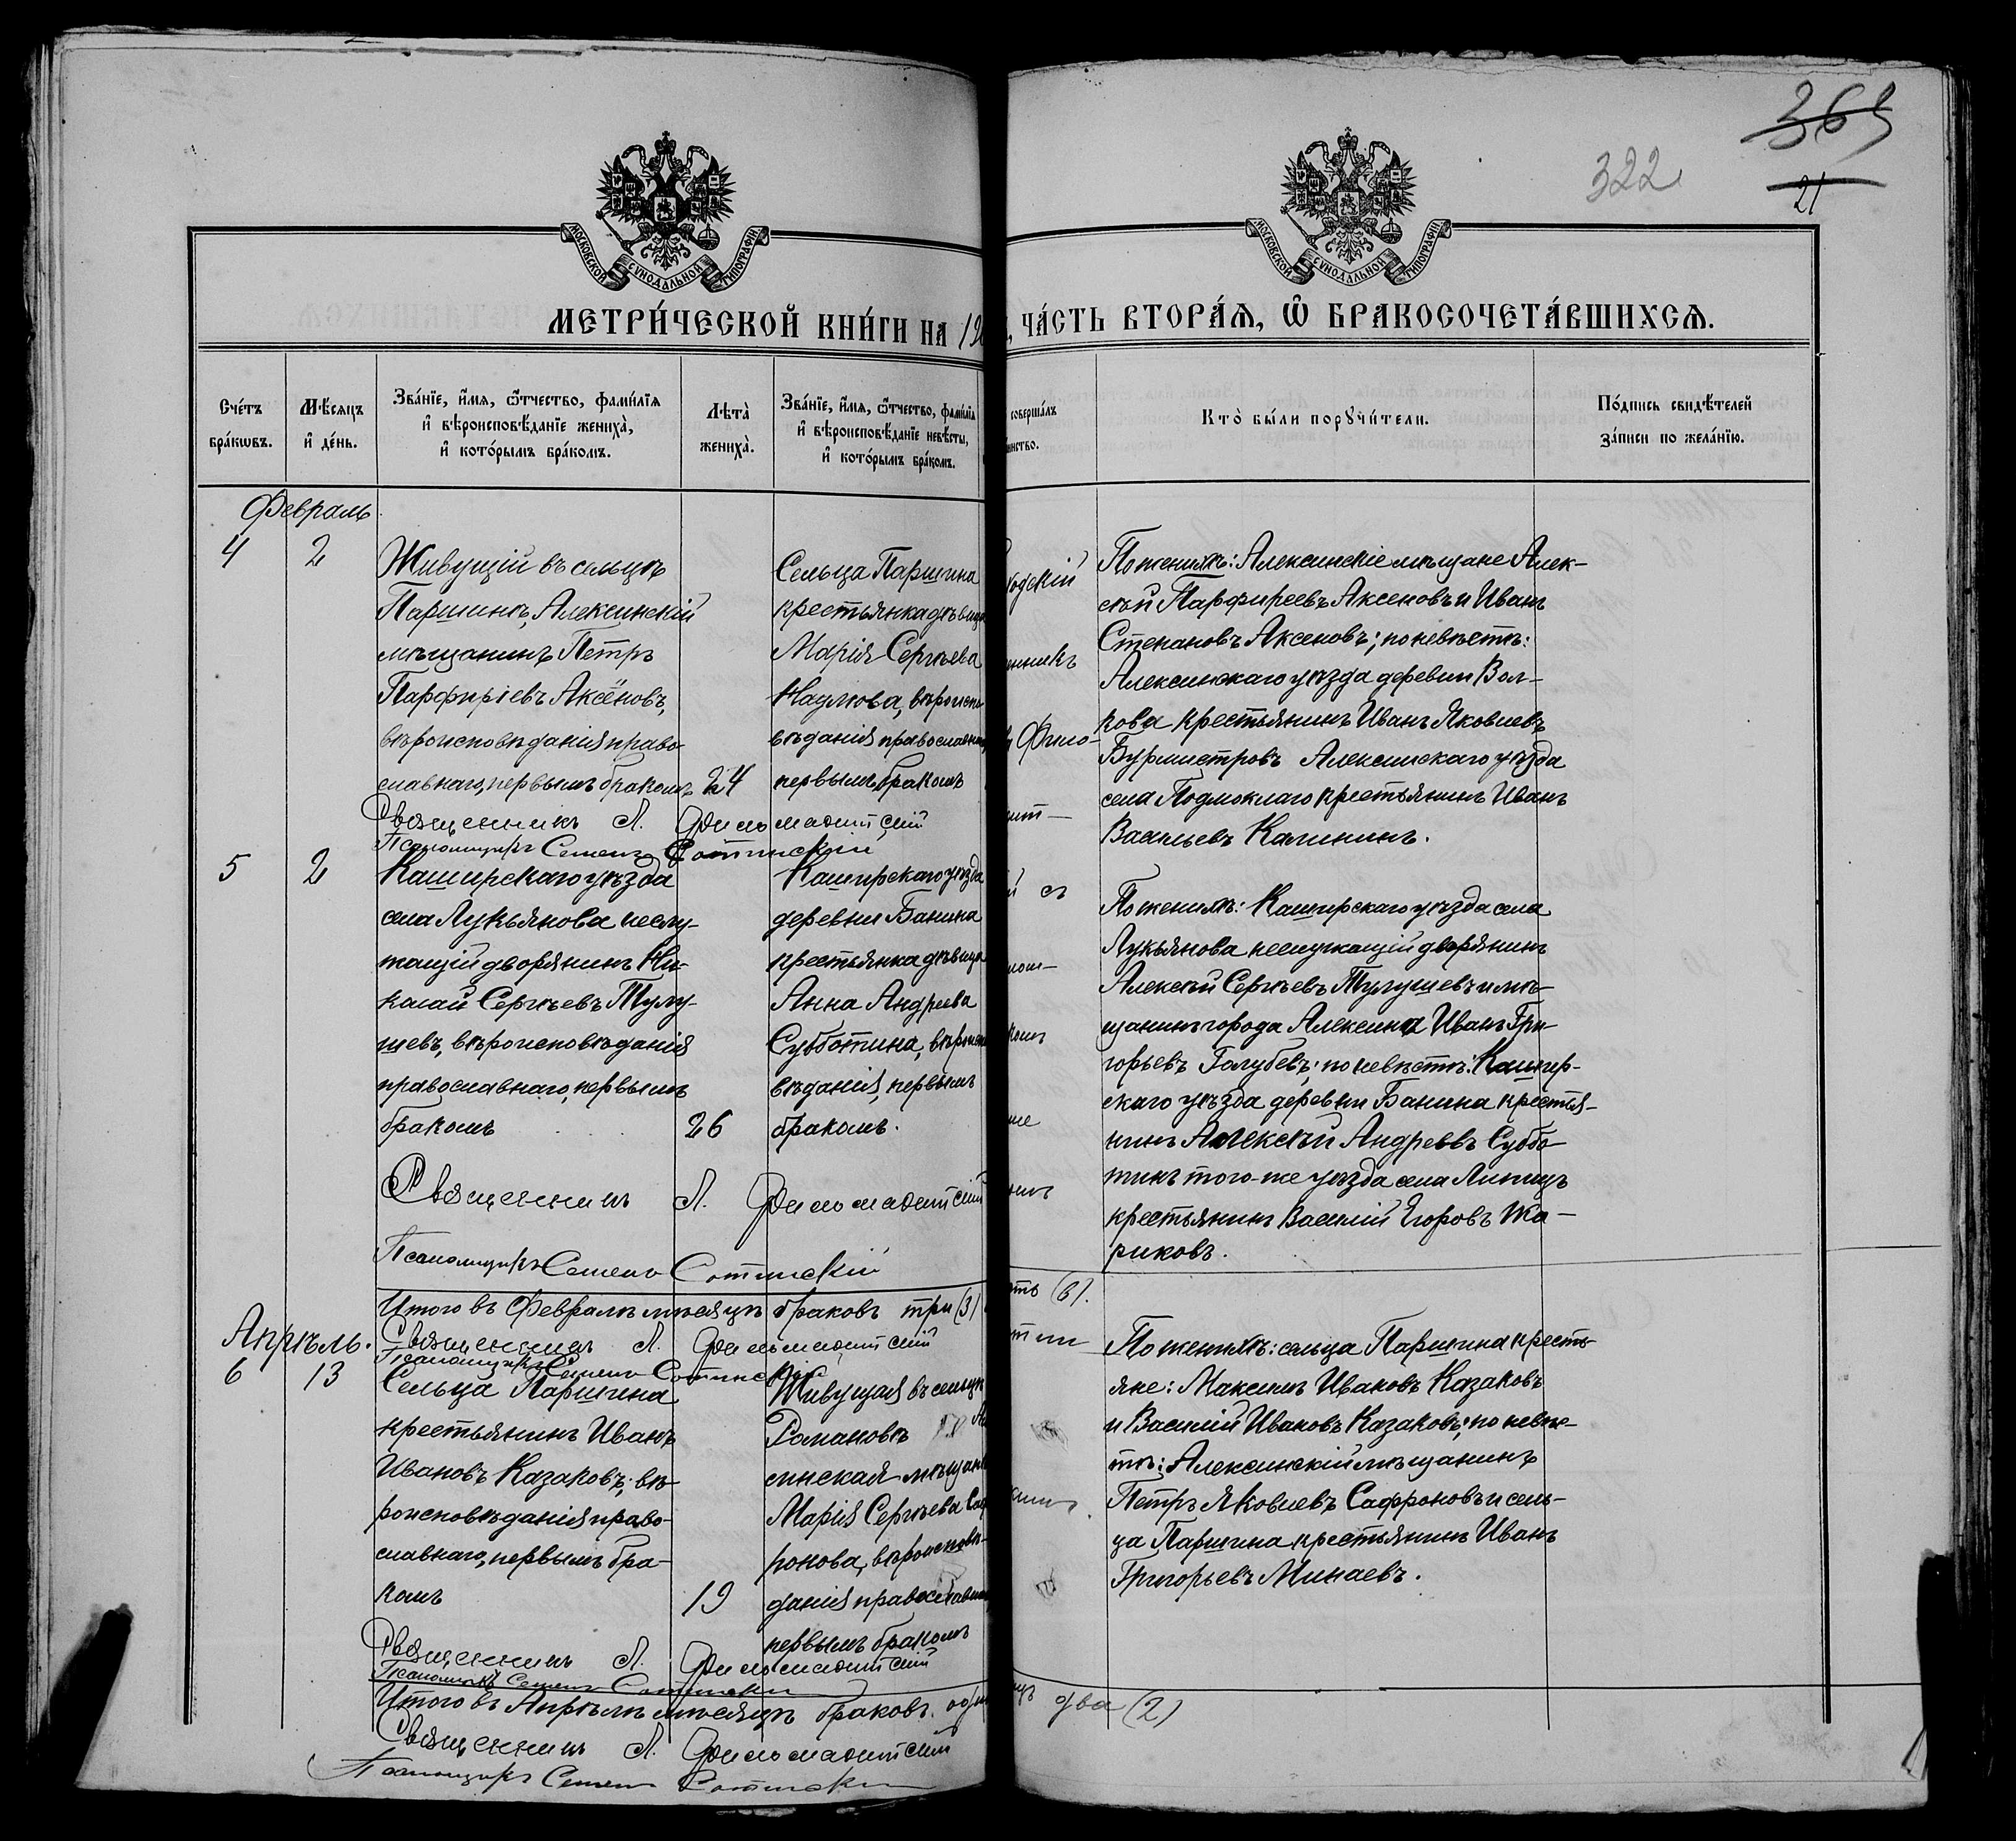 365
322
21
МОСКОВСКОЙ СУНОДАЛЬНОЙ ТИПОГРАФІИ
МОСКОВСКОЙ СУНОДАЛЬНОЙ ТИПОГРАФІИ
МЕТРИ́ЧЕСКОЙ КНИ́ГИ НА 19
ЧА́СТЬ ВТОРА́Ѧ, Ѽ БРАКОСОЧЕТА́ВШИХСѦ.
Сче́тъ бра́кѡвъ.
Мѣ́сяцъ и҆ де́нь.
Зва́нїе, и҆́мя, ѻ҆́тчество, фами́лїя и҆ вѣроисповѣ́данїе жениха̀, и҆ кото́рымъ бра́комъ.
Лѣта̀ жениха̀.
Зва́нїе, и҆́мя, ѻ҆́тчество, фами́лїя и҆ вѣроисповѣ́данїе невѣ́сты, и҆ кото́рымъ бра́комъ.
соверша́лъ
инство.
Кто̀ бы́ли порꙋчи́тели.
По́дпись свидѣ́телей за́писи по жела́нїю.
Февраль
4 2
Живущій въ сельцѣ
Паршинѣ, Алексинскій
мѣщанинъ Петръ
Парфиріевъ Аксёновъ,
вѣроисповѣданія право-
славнаго, первымъ бракомъ
24
Сельца Паршина
крестьянка дѣвица
Марія Сергѣева
Наумова, вѣроиспо
вѣданія православн
первымъ бракомъ
одскій
нникъ
Фило-
ит-
По женихѣ: Алексинскіе мѣщане Алек-
сѣй Парфиреевъ Аксеновъ и Иванъ
Степановъ Аксеновъ; по невѣстѣ:
Алексинскаго уѣзда деревни Вол-
кова крестьянинъ Иванъ Яковлевъ
Бурмистровъ Алексинскаго уѣзда
села Подмоклаго крестьянинъ Иванъ
Васильевъ Калининъ.
Священникъ Л. Филоматитскій
Псаломщикъ Семенъ Сотинскій
5 2
Каширскаго уѣзда
села Лукьянова неслу-
жащій дворянинъ Ни-
колай Сергѣевъ Тулу-
шевъ, вѣроисповѣданія
православнаго, первымъ
бракомъ
26
Каширскаго уѣзда
деревни Банина
крестьянка дѣвица
Анна Андреева
Субботина, вѣроиспо
вѣданія, первымъ
бракомъ.
й съ
По женихѣ: Каширскаго уѣзда села
Лукьянова неслужащій дворянинъ
Алексѣй Сергѣевъ Тулушевъ и мѣ-
щанинъ города Алексина Иванъ Гри-
горьевъ Голубевъ; по невѣстѣ: Кашир-
скаго уѣзда деревни Банина крестья-
нинъ Алексѣй Андреевъ Суббо-
тинъ того-же уѣзда села Липицъ
крестьянинъ Василій Егоровъ Жа-
риковъ.
Священникъ Л. Филоматитскій
Псаломщикъ Семенъ Сотинскій
Итого въ Февралѣ мѣсяцѣ браковъ три (3)
сть (6).
Священникъ Л. Филоматитскій
Псаломщикъ Семенъ Сотинскій
Апрѣль.
6 13
Сельца Паршина
крестьянинъ Иванъ
Ивановъ Казаковъ; вѣ-
роисповѣданія право-
славнаго, первымъ бра-
комъ
19
Живущая въ сельцѣ
Романовѣ Ал
синская мѣщанк
Марія Сергѣева Саф
ронова, вѣроисповѣ-
данія православн
первымъ бракомъ
По женихѣ: сельца Паршина кресть
яне: Максимъ Ивановъ Казаковъ
и Василій Ивановъ Казаковъ; по невѣс-
тѣ: Алексинскій мѣщанинъ
Петръ Яковлевъ Сафроновъ и сель-
ца Паршина крестьянинъ Иванъ
Григорьевъ Минаевъ.
Священникъ Л. Филоматитскій
Псаломщикъ Семенъ Сотинскій
Итого въ Апрѣлѣ мѣсяцѣ браковъ оди
два (2)
Священникъ Л. Филоматитскій
Псаломщикъ Семенъ Сотинскій